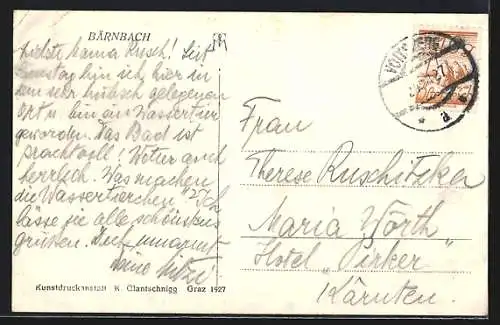 BÄRNBACH
Liebste Mama Rusch! Seit
Samstag bin ich hier in
dem sehr hübsch gelegenen
Ort u. bin ein Wassertier
geworden. Das Bad ist
prachtvoll! Wetter auch
herrlich. Was machen
die "Wassertierchen"? Ich
lasse sie alle schönstens
grüßen. Dich umarmt
Deine
Kunstdruckanstalt K. Glantschnigg Graz 1927
VOITSBERG
Frau
Therese Ruschitzka
Maria Wörth
Hotel "Pirker"
Kärnten.